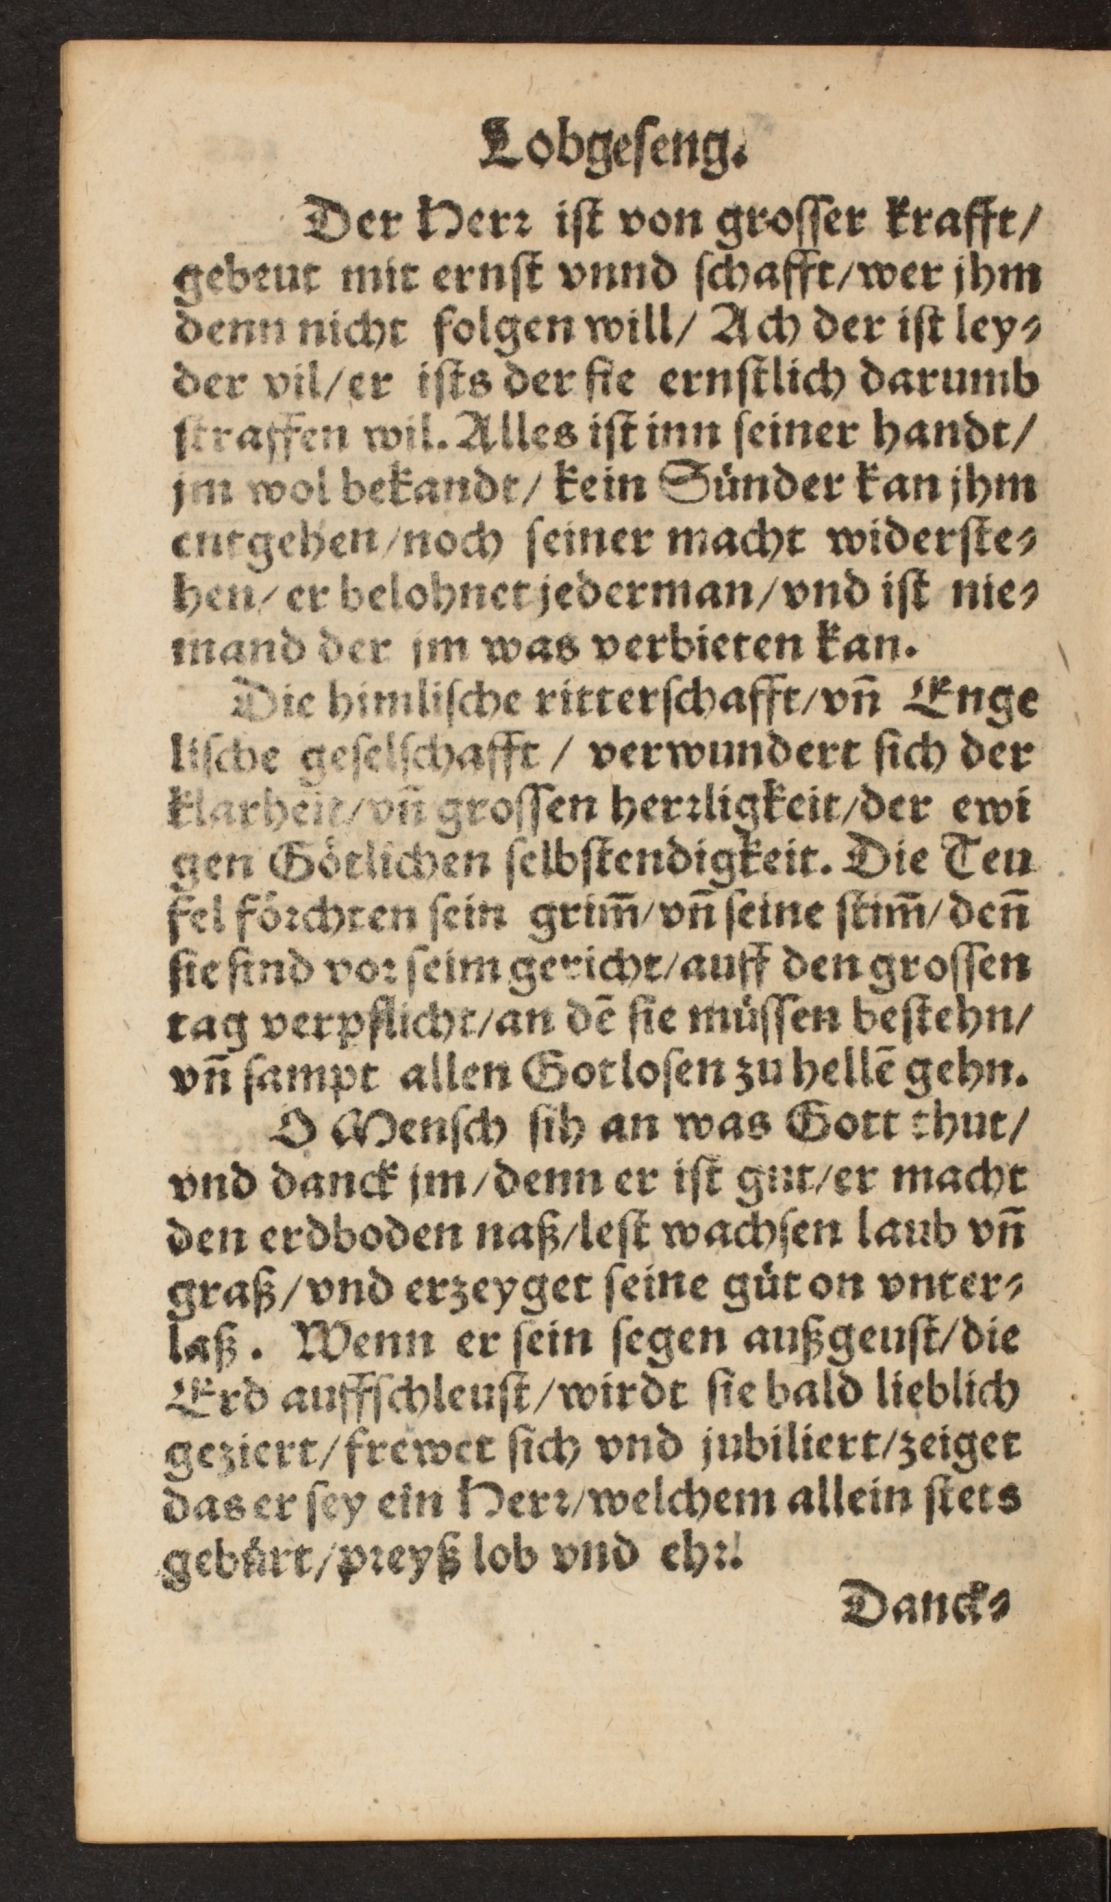 Lobgeſeng.
Der Herꝛ iſt von groſſer krafft/
gebeut mit ernſt vnnd ſchafft/wer jhm
denn nicht folgen will/ Ach der iſt ley⸗
der vil/er iſts der ſie ernſtlich darumb
ſtraffen wil. Alles iſt inn ſeiner handt/
jm wol bekandt/ kein Sünder kan jhm
entgehen/noch ſeiner macht widerſte⸗
hen/ er belohnet jederman/vnd iſt nie⸗
mand der jm was verbieten kan.
Die himliſche ritterſchafft/vn̄ Enge
liſche geſelſchafft / verwundert ſich der
klarheit/vn̄ groſſen herꝛligkeit/der ewi
gen Götlichen ſelbſtendigkeit. Die Teu
fel föꝛchten ſein grim̄/vn̄ ſeine ſtim̄/den̄
ſie ſind voꝛ ſeim gericht/auff den groſſen
tag verpflicht/an dē ſie müſſen beſtehn/
vn̄ ſampt allen Gotloſen zu hellē gehn.
O Menſch ſih an was Gott thut/
vnd danck jm/denn er iſt gut/er macht
den erdboden naß/leſt wachſen laub vn̄
graß/vnd erzeyget ſeine güt on vnter⸗
laß. Wenn er ſein ſegen außgeuſt/die
Erd auffſchleuſt/wirdt ſie bald lieblich
geziert/frewet ſich vnd jubiliert/zeiget
das er ſey ein Herꝛ/welchem allein ſtets
gebürt/pꝛeyß lob vnd ehꝛ.
Danck⸗